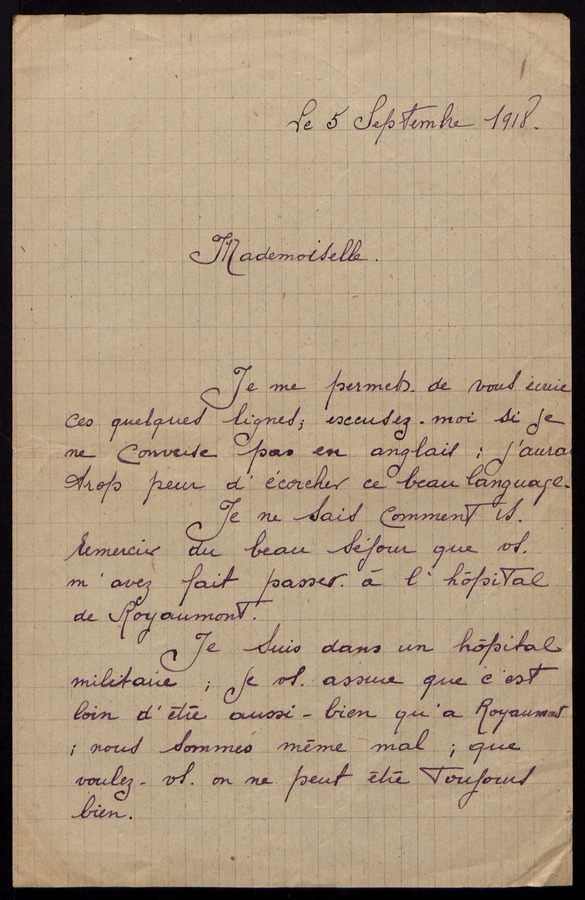 Le 5 Septembre 1918.
Mademoiselle.
Je me permets de vous écrire
ces quelques lignes; excusez-moi si je
ne converse pas en anglais ; j'aurai
trop peur d'écorcher ce beau language.
Je ne sais comment vs.
remercier du beau séjour que vs.
m'avez fait passer à l'hôpital
de Royaumont.
Je suis dans un hôpital
militaire ; je vs. assure que c'est
loin d'être aussi-bien qu'a Royaumont
; nous sommes même mal ; que
voulez-vs. on ne peut être toujours
bien.